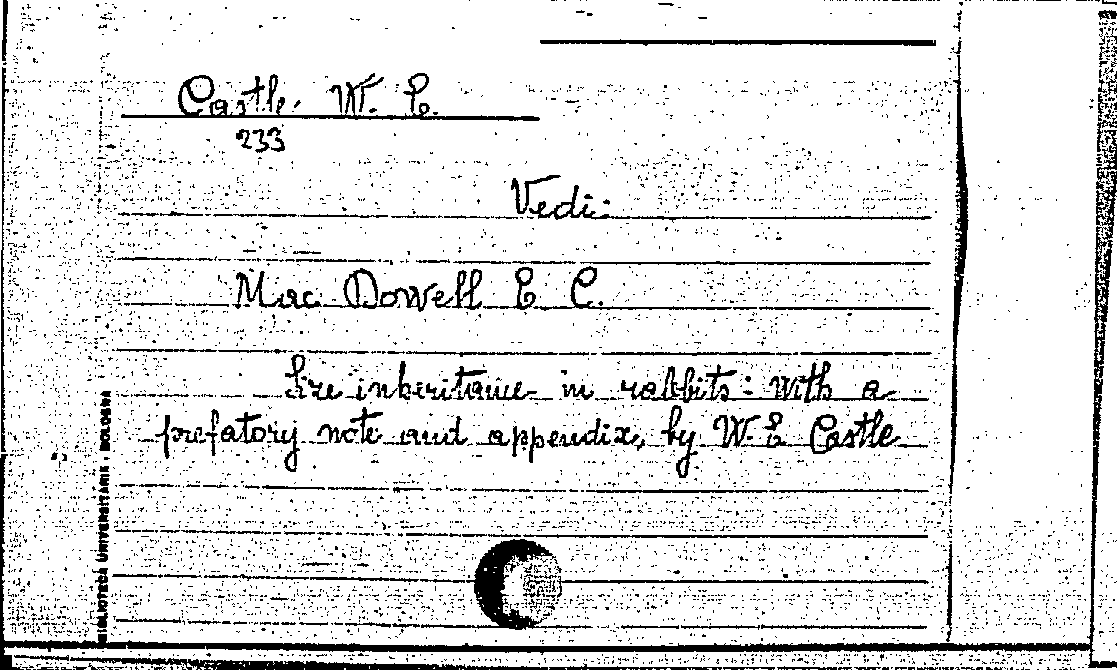 Castle. W. E.
233
Vedi:
Mac Dowell E C.
Size inheritance in rabbits: with a
prefatory note and appendix, by W. E Castle
BIBLIOTECA UNIVERSITARIA BOLOGNA